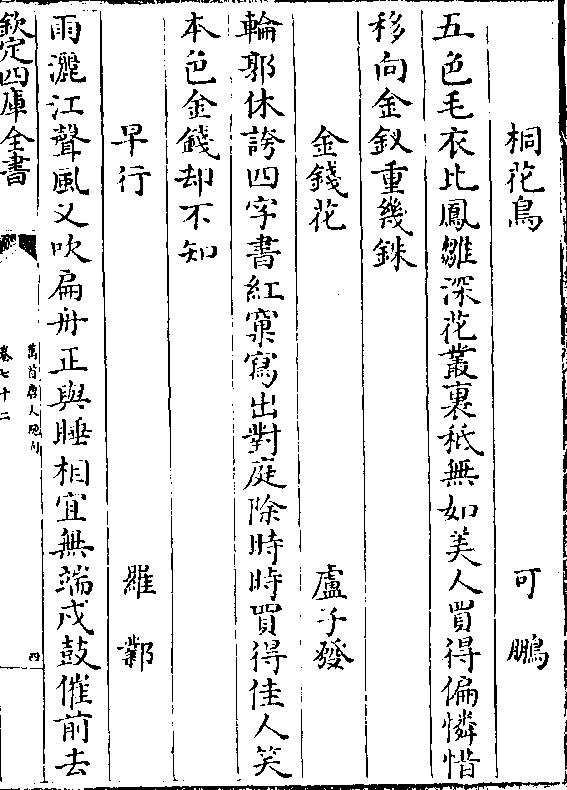 桐花鳥 可朋鳥
五色毛衣比鳳雛深花叢裏秪無如美人買得偏憐惜
移向金釵重幾銖
金錢花 盧子發
輪郭休誇四字書紅窠寫出對庭除時時買得佳人笑
本色金錢却不知
早行 羅鄴
雨灑江聲風又吹扁舟正與睡相宜無端戍鼓催前去
欽定四庫全書
萬首唐人絶句
卷七十二
四